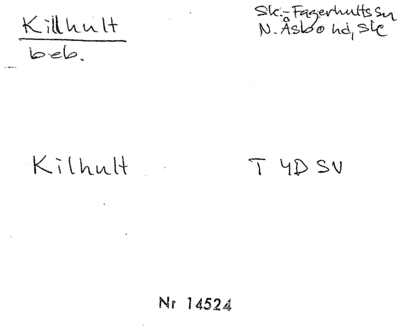 Killhult
beb.
Sk:-Fagerhults sn
N. Åsbo hd, Sk
Kilhult
T 4D SV
Nr 14524